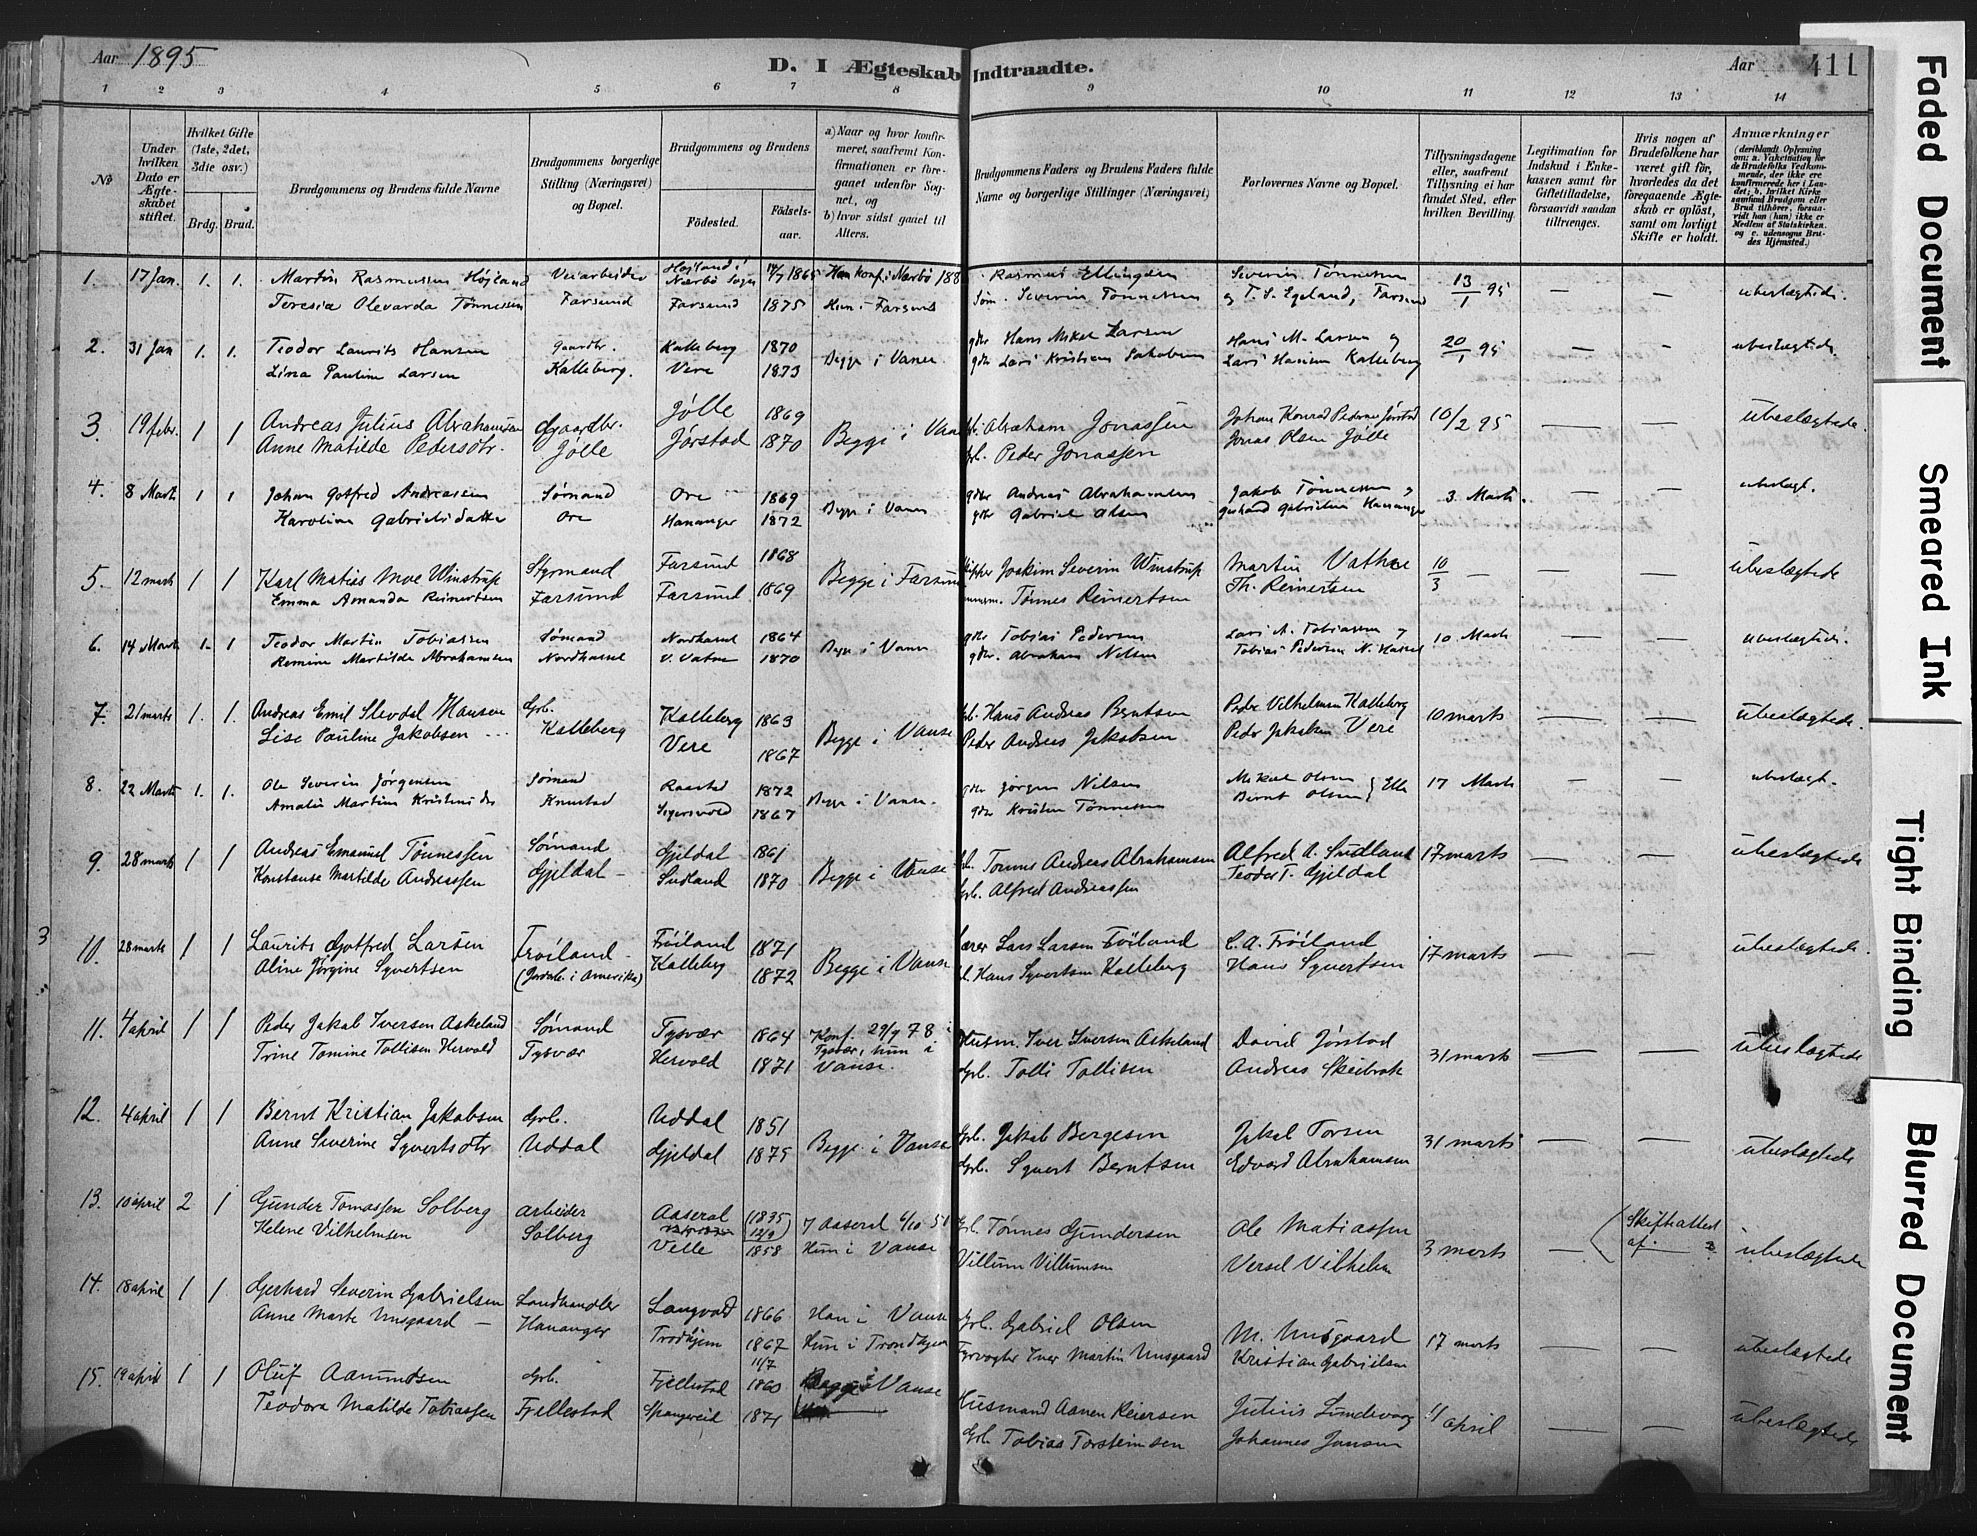 Aar 1895
D. I Ægteskab Indtraadte.
Aar
411
1 2 3 4 5 6 7 8 9 10 11 12 13 14
No
Under hvilken Dato er Ægteskabet stiftet.
Hvilket Gifte (1ste, 2det, 3die osv.)
Brdg. Brud.
Brudgommens og Brudens fulde Navne
Brudgommens borgerlige Stilling (Næringsvei) og Bopæl.
Brudgommens og Brudens
Fødested. Fødselsaar.
a) Naar og hvor konfirmeret, saafremt Konfirmationen er foregaaet udenfor Sognet, og
b) hvor sidst gaaet til Alters.
Brudgommens Faders og Brudens Faders fulde Navne og borgerlige Stillinger (Næringsvei)
Forlovernes Navne og Bopæl.
Tillysningsdagene eller, saafremt Tillysning ei har fundet Sted, efter hvilken Bevilling.
Legitimation for Indskud i Enkekassen samt for Giftetilladelse, forsaavidt saadan tiltrænges.
Hvis nogen af Brudefolkene har været gift før, hvorledes da det foregaaende Ægteskab er opløst, samt om lovligt Skifte er holdt.
Anmærkninger (deriblandt Oplysning om: a. Vakcination for de Brudefolks Vedkommende, der ikke ere konfirmerede her i Landet; b. hvilket Kirkesamfund Brudgom eller Brud tilhører, forsaavidt han (hun) ikke er Medlem af Statskirken. og c. udensogns Brudes Hjemsted.)
1. 17 Jan. 1. 1. Martin Rasmussen Højland Veiarbeider Højland i Nærbø Sogn 1865 Han konf. i Nærbø Rasmus Ellingsen Severin Tønnesen 13/1 95 — — ubeslægtede.
Teresia Olevarda Tønnesen Farsund Farsund 1875 Hun i Farsund Søm. Severin Tønnesen og T. S. Egeland, Farsund
2. 31 Jan 1. 1. Teodor Laurits Hansen Gaardbr. Kalleberg 1870 Begge i Vanse gbr Hans Mikal Larsen Hans M. Larsen og 20/1 95 — — ubeslægtede.
Lina Pauline Larsen Kalleberg. Vere 1873 gbr Lars Kristian Jakobsen Lars Hansen Kalleberg
3. 19 febr. 1 1 Andreas Julius Abrahamsen Gaardbr. Jølle 1869 Begge i Vanse Abraham Jonassen Johan Konrad Pedersen Jørstad 10/2 95 — — ubeslægtede.
Anne Matilde Pedersdtr. Jølle Jørstad 1870 Peder Jonassen Jonas Olsen Jølle
4. 8 Marts 1 1 Johan Gotfred Andreassen Sømand Ore 1869 Begge i Vanse gbr Andreas Abrahamsen Jakob Tønnesen og 3. Marts. — — ubeslægt.
Karoline Gabrielsdatter Ore Hananger 1872 gbr Gabriel Olsen Gerhard Gabrielsen Hananger
5. 12 marts 1 1 Karl Matias Moe Winstrup Styrmand Farsund 1868 Begge i Farsund Joakim Severin Winstrup Martin Vathne 10/3 — — — ubeslægtede
Emma Amanda Reinertsen Farsund Farsund 1869 Tønnes Reinertsen Th. Reinertsen
6. 14 Marts 1. 1 Teodor Martin Tobiassen Sømand Nordhassel 1864 Begge i Vanse gbr Tobias Pedersen Lars A. Tobiassen og 10. Marts — — ubeslægtede.
Remine Martilde Abrahamsen Nordhassel V. Vatne 1870 gbr. Abraham Nilsen Tobias Pedersen N. Hassel
7. 21 marts 1. 1. Andreas Emil Slevdal Hansen Grb. Kalleberg 1863 Begge i Vanse Hans Andreas Berntsen Peder Vilhelmsen Kalleberg 10 marts — — ubeslægtede.
Lise Pauline Jakobsen Kalleberg Vere 1867 Peder Andreas Jakobsen Peder Jakobsen Vere
8. 22 Marts 1. 1. Ole Severin Jørgensen Sømand Raastad 1872 Begge i Vanse. gbr Jørgen Nilsen Mikal Olsen 17 Marts — — ubeslægt.
Amalie Martine Knivstad Sigersvold 1867 gbr Kristen Tønnesen Bernt Olsen
9. 28 marts 1 1 Andreas Emanuel Tønnessen Sømand Gjeldal 1861 Begge i Vanse Tønnes Andreas Abrahamsen Alfred A. Sudland 17 marts — — ubeslægtede
Konstanse Martilde Andreassen Gjeldal Sudland 1870 Grb. Alfred Andreassen Teodor T. Gjeldal
3
10. 28 marts 1 1 Laurits Gotfred Larsen Frøiland Frøiland 1871 Begge i Vanse Lars Larsen Frøiland L. A. Frøiland 17 marts — — ubeslægtede.
Aline Jørgine Syvertsen (Jordab. i Amerika) Kalleberg 1872 Hans Syvertsen Kalleberg Hans Syvertsen
11. 4 april 1 1 Peder Jakob Iversen Askeland Sømand Tysvær 1864 Konf. 29/9 78 i Husm. Iver Iversen Askeland David Jørstad 31 marts — — ubeslægtede
Trine Tomine Tollisen Hervold Tysvær Hervold 1871 Tysvær, hun i Vanse. Grb. Tolli Tollisen Andreas Skeibrok
12. 4 april 1 1 Bernt Kristian Jakobsen Grb. Uddal 1851 Begge i Vanse Grb. Jakob Bergesen Jakob Torsen 31 marts — — ubeslægtede
Anne Severine Syvertsdtr Uddal Gjeldal 1875 Grb. Syvert Berntsen Edvard Abrahamsen
13. 10 april 2 1 Gunder Tomassen Solberg arbeider Aaseral (1835 12/9) 7 Aaseral 4/10 51 Tønnes Gundersen Ole Matiassen 3 marts — Skifteattest af ubeslægtede
Helene Vilhelmsen Solberg Velle 1858 Hun i Vanse Villum Villumsen Versel Vilhelm
14. 18 april 1 1 Gerhard Severin Gabrielsen Landhandler Langvold 1866 Han i Vanse Grb. Gabriel Olsen M. Unsgaard 17 marts — — ubeslægtede
Anne Marte Unsgaard — Hananger Trondhjem 1867 Hun i Trondhjem Fyrvogter Iver Martin Unsgaard Kristian Gabrielsen
15. 19 april 1 1 Oluf Aanundsen Grb. Fjellestad 11/7 1860 Begge i Vanse Husmand Aanen Reiersen Julius Lundevaag 11 april — — ubeslægtede
Teodora Matilde Tobiassen Fjellestad Spangereid 1871 Grb. Tobias Torsteinsen Johannes Jansen
Faded Document
Smeared Ink
Tight Binding
Blurred Document